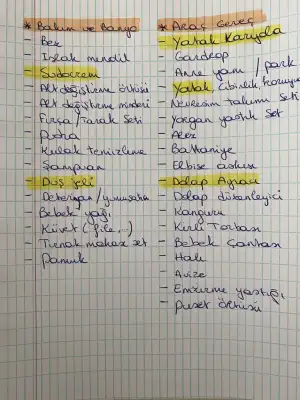 * Bakım ve Banyo
- Bez
- Islak mendil
- Sudocrem
- Alt değiştirme örtüsü
- Alt değiştirme minderi
- Fırça / Tarak Seti
- Pudra
- Kulak temizleme
- Şampuan
- Duş jeli
- Deterjan / yumuşatıcı
- Bebek yağı
- Küvet (file,..)
- Tırnak makas set
- Pamuk
* Araç Gereç
- Yatak Karyola
- Gardrop
- Anne yanı / park
- Yatak, Cibinlik,
- Nevresim Takımı Seti
- Yorgan yastık Set
- Alez
- Battaniye
- Elbise askısı
- Dolap Aynası
- Dolap düzenleyici
- Kanguru
- Kirli Torbası
- Bebek Çantası
- Halı
- Avize
- Emzirme yastığı
- Puset Örtüsü